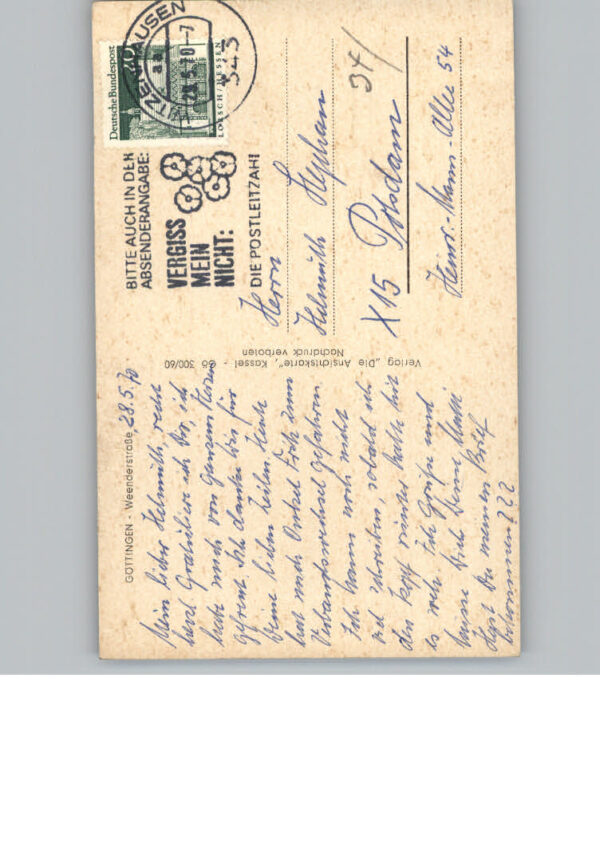 GÖTTINGEN - Weenderstraße, 28.5.70
Mein lieber Helmuth, recht
herzl. Gratuliere ich Dir, ich
habe mich von ganzem Herzen
gefreut. Ich danke Dir für
Deine lieben Zeilen. Heute
hat mich Onkel Fritz zum
Verbandswechsel gefahren.
Ich kann noch nicht
viel schreiben, sobald ich
den Kopf runter halte tut
es weh. Ich Grüße und
küsse Dich Deine Mutti
Hast Du meinen Brief
bekommen???
Verlag „Die Ansichtskarte", Kassel - Gö 300/60
Nachdruck verboten
BITTE AUCH IN DER
ABSENDERANGABE:
VERGISS
MEIN
NICHT:
DIE POSTLEITZAHL
Deutsche Bundespost
20
LORSCH/HESSEN
TZENHAUSEN
28.5.70-7
343
34/
Herrn
Helmuth Stephan
X15 Potsdam
Heinr.-Mann-Allee 54